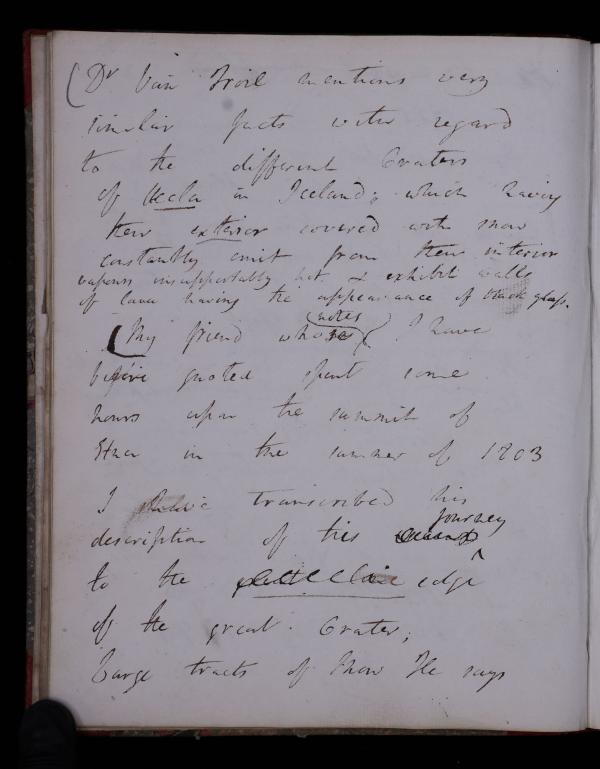 (Dr Van Troil mentions very
similar facts with regard
to the different Craters
of Hecla in Iceland; which having
their exterior covered with snow
constantly emit from their interior
vapours insupportably hot & exhibit walls
of lava having the appearance of black glass.
(notes)
(My friend whose I have
before quoted spent some
hours upon the summit of
Etna in the summer of 1803
I have transcribed his
journey
description of his
to the edge
of the great Crater;
Large tracts of Snow He says